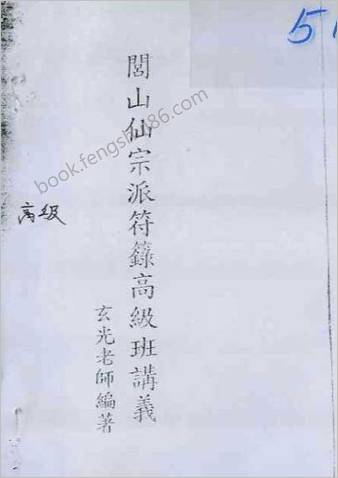 51
閭山仙宗派符籙高級班講義
玄光老師編著
高级
book.fengshui86.com